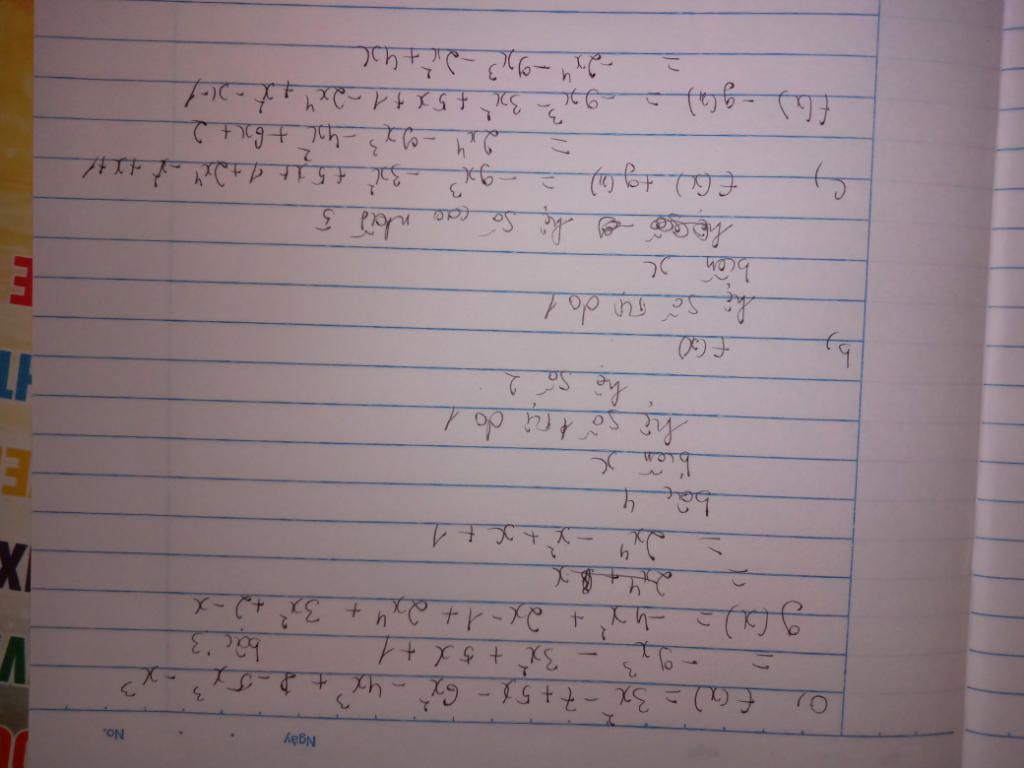 Ngày No.
a, f(x) = 3x² - 7 + 5x - 6x² - 4x³ + 8 - 5x³ - x³
= -9x³ - 3x² + 5x + 1 bậc 3
g(x) = -4x² + 2x - 1 + 2x⁴ + 3x² + 2 - x
= 2x⁴ + x
= 2x⁴ - x² + x + 1
bậc 4
biến x
hệ số tự do 1
hệ số 2
b, f(x)
hệ số tự do 1
biến x
hệ số cao nhất 5
c, f(x) + g(x) = -9x³ - 3x² + 5x + 1 + 2x⁴ - x² + x + 1
= 2x⁴ - 9x³ - 4x² + 6x + 2
f(x) - g(x) = -9x³ - 3x² + 5x + 1 - 2x⁴ + x² - x - 1
= -2x⁴ - 9x³ - 2x² + 4x